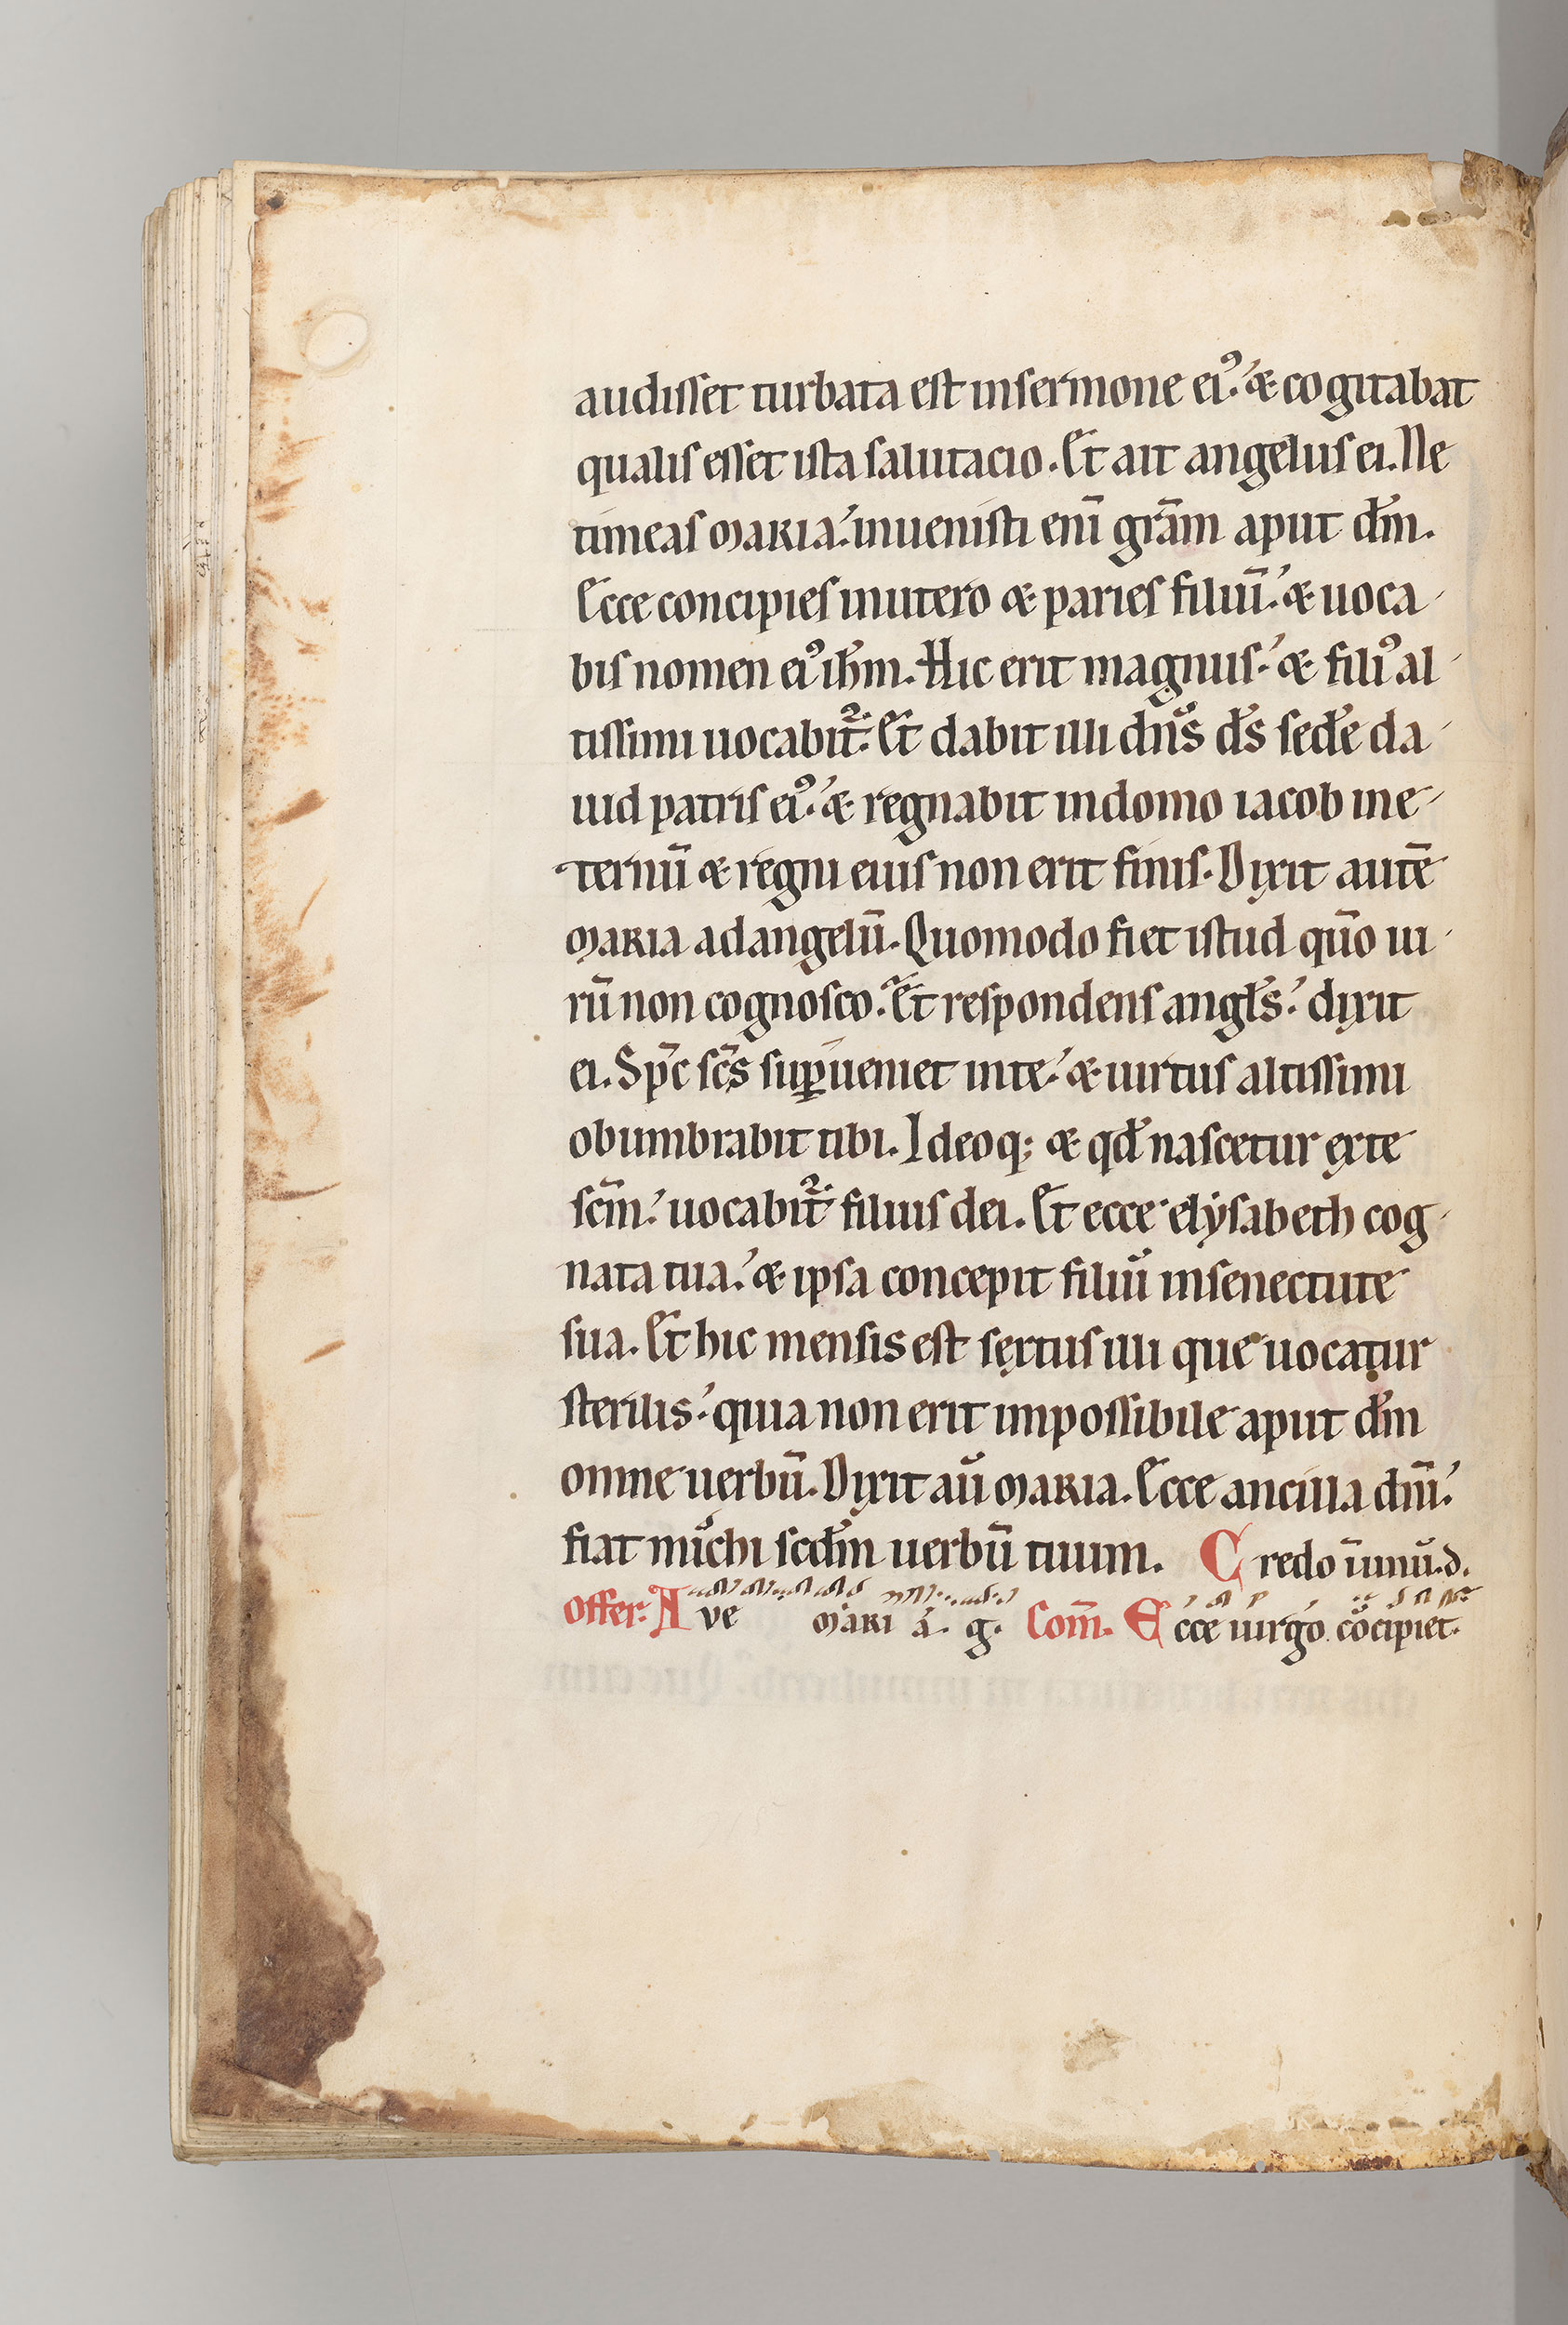 audisset turbata est in sermone eiꝰ. & cogitabat
qualis esset ista salutacio. Et ait angelus ei. Ne
timeas MARIA. inuenisti eni̅ gr̅am aput dm̅.
Ecce concipies in utero & paries filiu̅. & uoca
bis nomen eiꝰ ihm̅. Hic erit magnus. & filiꝰ al
tissimi uocabit᷑. Et dabit illi dn̅s ds̅ sede̅ da
uid patris eiꝰ. & regnabit in domo iacob in e
ternu̅ & regni eius non erit finis. Dixit aute̅
MARIA ad angelu̅. Quomodo fiet istud quo̅ ui
ru̅ non cognosco. Et respondens angl̅s. dixit
ei. Spc̅ sc̅s suꝑueniet in te. & uirtus altissimi
obumbrabit tibi. Ideoq; & qd̅ nascetur ex te
sc̅m. uocabit᷑ filius dei. Et ecce elẏsabeth cog
nata tua. & ipsa concepit filiu̅ in senectute
sua. Et hic mensis est sextus illi que uocatur
sterilis. quia non erit impossibile aput dm̅
omne uerbu̅. Dixit au̅ MARIA. Ecce ancilla dni̅.
fiat michi scdm̅ uerbu̅ tuum. Credo i̅ unu̅. d.
Offer. Ave mari a. g. Com̅. Ecce uirgo co̅cipiet.